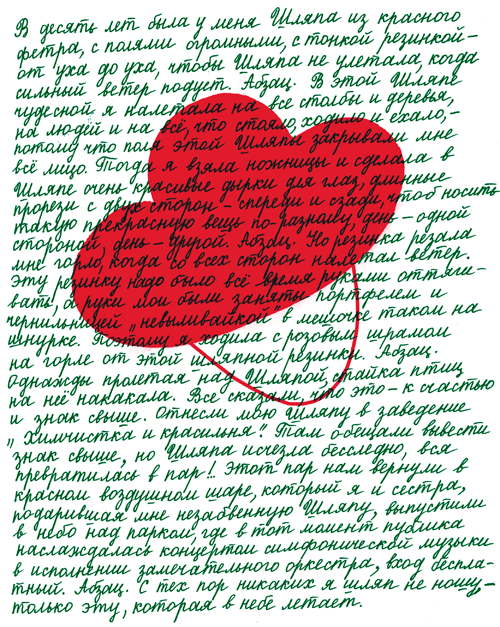 В десять лет была у меня Шляпа из красного
фетра, с полями огромными, с тонкой резинкой –
от уха до уха, чтобы Шляпа не улетала, когда
сильный ветер подует. Абзац. В этой Шляпе
чудесной я налетала на все столбы и деревья,
на людей и на всё, что стояло, ходило и ехало, –
потому что поля этой Шляпы закрывали мне
всё лицо. Тогда я взяла ножницы и сделала в
Шляпе очень красивые дырки для глаз, длинные
прорези с двух сторон – спереди и сзади, чтоб носить
такую прекрасную вещь по-разному, день – одной
стороной, день – другой. Абзац. Но резинка резала
мне горло, когда со всех сторон налетал ветер.
Эту резинку надо было всё время руками оттяги-
вать, а руки мои были заняты портфелем и
чернильницей „невыливайкой" в мешочке таком на
шнурке. Поэтому я ходила с розовым шрамом
на горле от этой шляпной резинки. Абзац.
Однажды пролетая над Шляпой, стайка птиц
на неё накакала. Все сказали, что это – к счастью
и знак свыше. Отнесли мою Шляпу в заведение
„Химчистка и красильня". Там обещали вывести
знак свыше, но Шляпа исчезла бесследно, вся
превратилась в пар!.. Этот пар нам вернули в
красном воздушном шаре, который я и сестра,
подарившая мне незабвенную Шляпу, выпустили
в небо над парком, где в тот момент публика
наслаждалась концертом симфонической музыки
в исполнении замечательного оркестра, вход беспла-
тный. Абзац. С тех пор никаких я шляп не ношу, –
только эту, которая в небе летает.